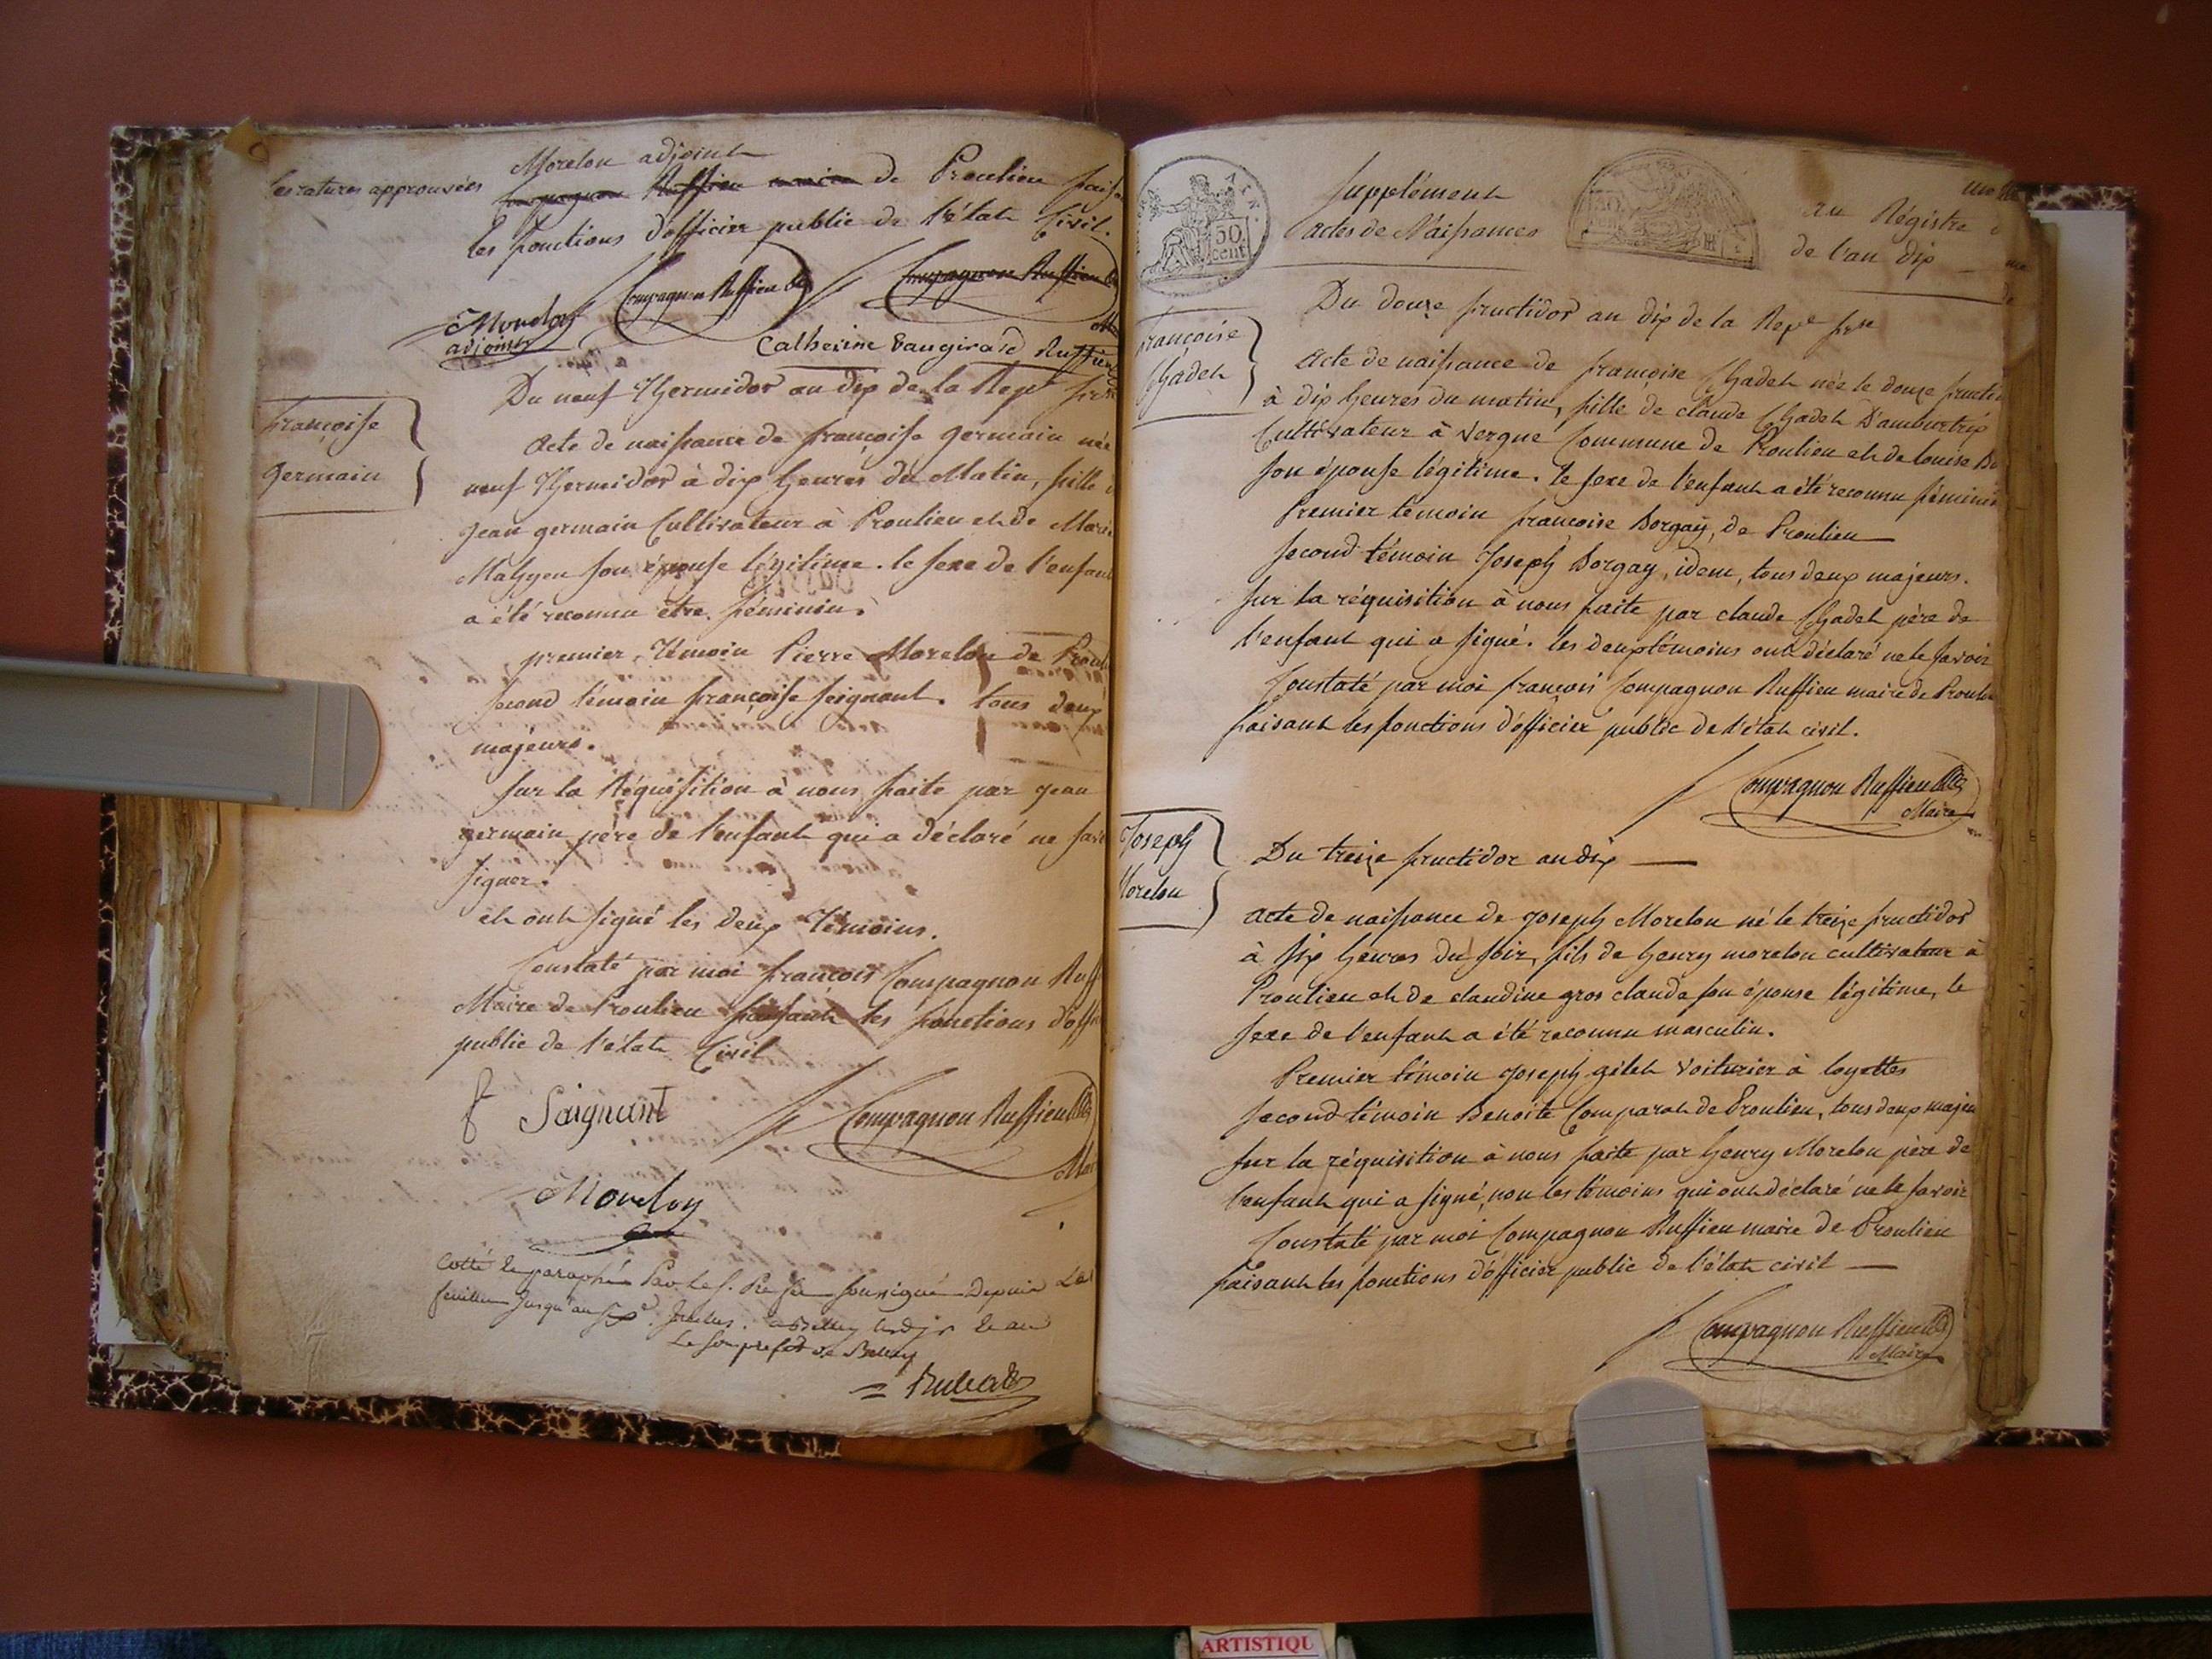 Morelon adjoint
les ratures approuvées Compagnon Ruffieu maire de Proulieu fais
les fonctions d'officier public de l'état Civil.
Compagnon Ruffieu
Compagnon Ruffieu
Morelon
adjoint
Catherine Vaugirard Ruffieu
Du neuf Thermidor an dix de la Repe frse
françoise
germain
Acte de naissance de françoise germain née
neuf Thermidor à dix heures du Matin, fille
Jean germain Cultivateur à Proulieu et de Marie
son épouse légitime. le sexe de l'enfant
a été reconnu être féminin.
premier Témoin Pierre Morelon de Proul
second témoin françoise seignant. tous deux
majeurs.
Sur la Réquisition à nous faite par jean
germain père de l'enfant qui a déclaré ne savoir
signer.
et ont signé les deux Témoins.
Constaté par moi françois Compagnon Ruff
Maire de Proulieu faisant les fonctions d'offi
public de l'état Civil
f Saignant
Compagnon Ruffieu
Mai
Morelon
Cotté et paraphé Par le S. Prefet soussigné Depuis
feuillet jusqu'au
Le Sou prefet de Belley
Supplément
actes de Naissances
50
cent
au Régistre
de l'an dix
Du douze fructidor an dix de la Repe frse
françoise
Chadet
Acte de naissance de françoise Chadet née le douze fructid
à dix heures du matin, fille de claude Chadet D'ambutrix
Cultivateur à Vergne Commune de Proulieu et de louise
son épouse légitime. le sexe de l'enfant a été reconnu féminin
Premier témoin françoise Dorgay, de Proulieu
second témoin Joseph Dorgay, idem, tous deux majeurs.
sur la réquisition à nous faite par claude Chadet père de
l'enfant qui a signé. les deux témoins ont déclaré ne le savoir
Constaté par moi françois Compagnon Ruffieu maire de Proulie
faisant les fonctions d'officier public de l'état civil.
Compagnon Ruffieu
Maire
Joseph
Morelon
Du treize fructidor an dix
Acte de naissance de joseph Morelon né le treize fructidor
à six heures du soir, fils de henry morelon cultivateur à
Proulieu et de claudine gros claude son épouse légitime, le
sexe de l'enfant a été reconnu masculin.
Premier témoin joseph gilet Voiturier à loyettes
second témoin Benoite Comparat de Proulieu, tous deux majeu
sur la réquisition à nous faite par henry Morelon père de
l'enfant qui a signé, non les témoins qui ont déclaré ne le savoir
Constaté par moi Compagnon Ruffieu maire de Proulieu
faisant les fonctions d'officier public de l'état civil
Compagnon Ruffieu
Maire
ARTISTIQU